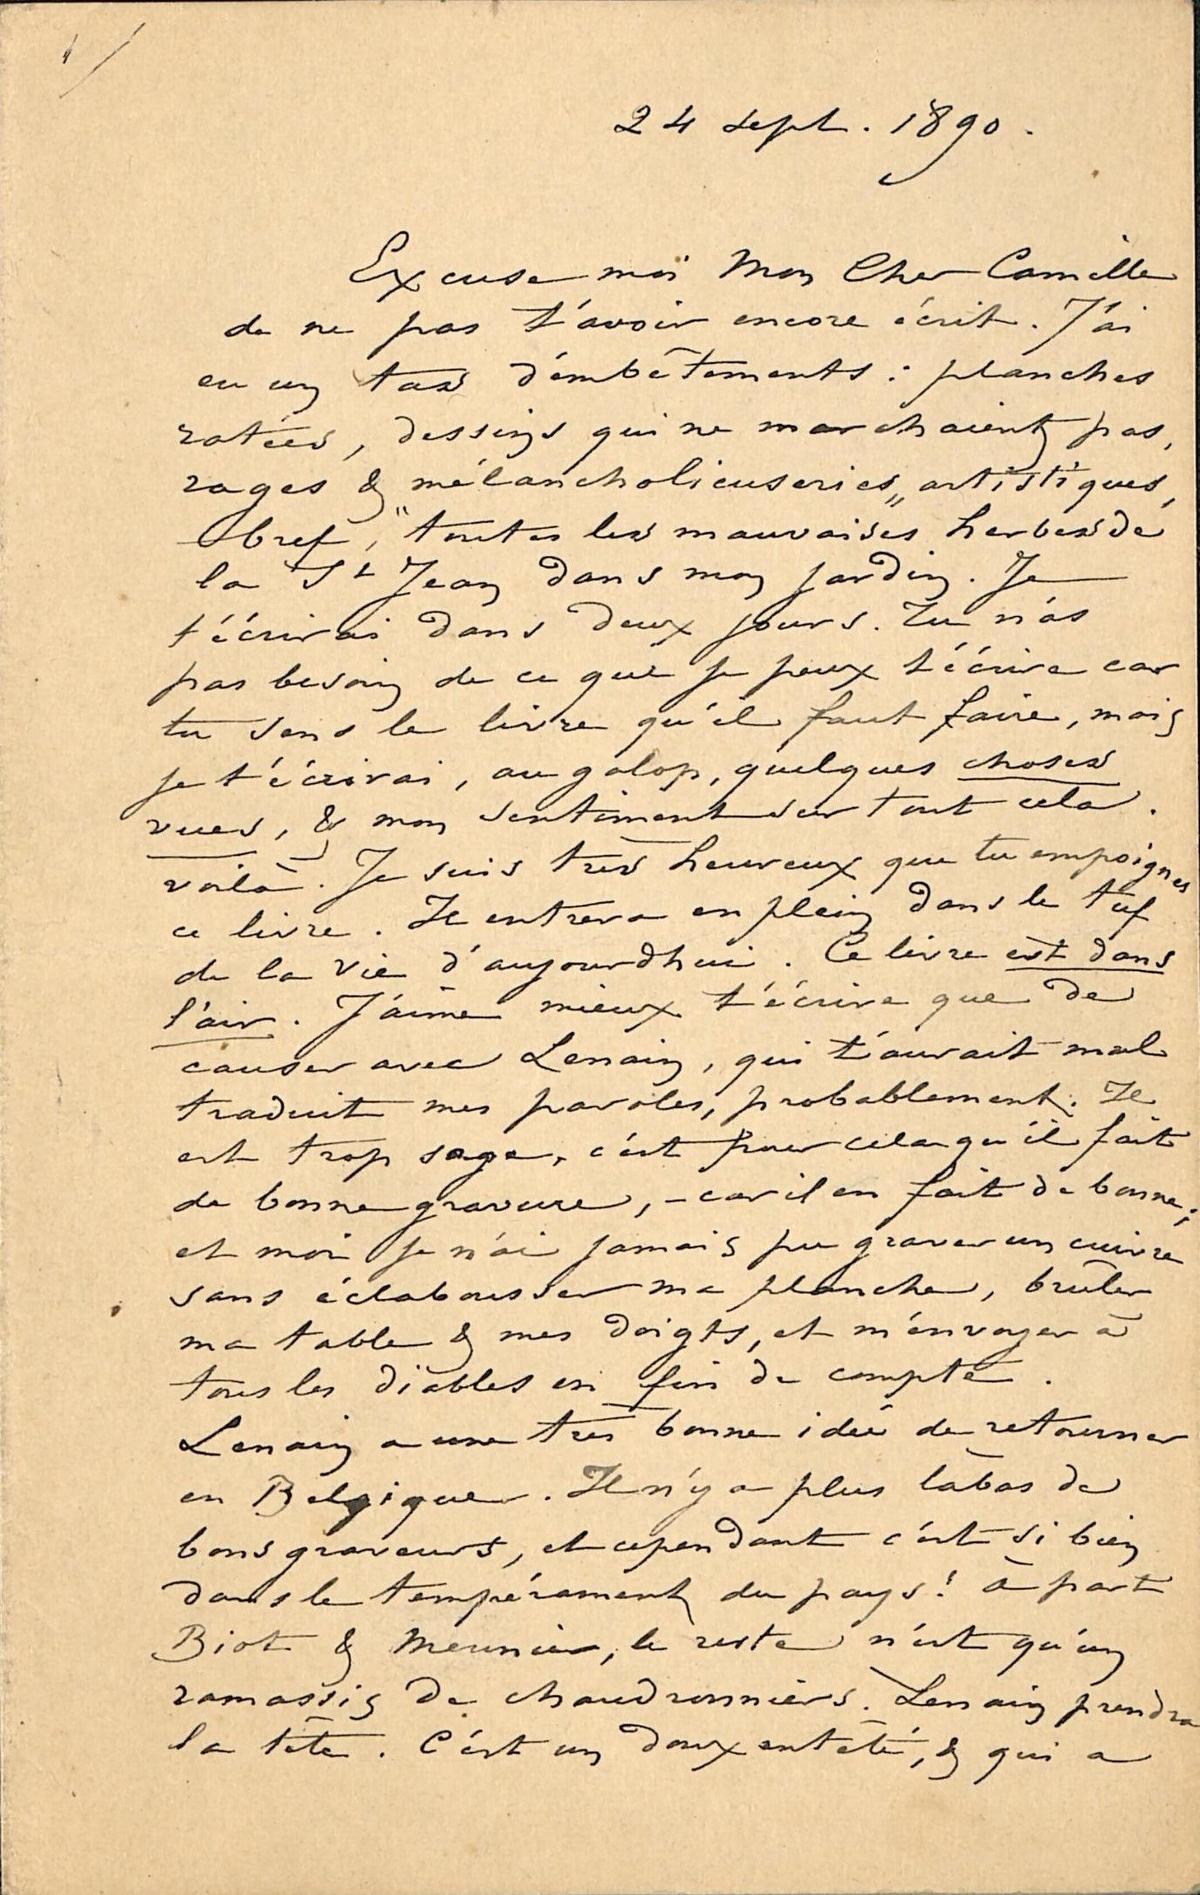 1/
24 sept. 1890.
Excuse moi Mon Cher Camille
de ne pas t'avoir encore écrit. J'ai
eu un tas d'embêtements : planches
ratées, dessins qui ne marchaient pas,
rages & "mélancholieuseries" artistiques,
bref, toutes les mauvaises herbes de
la St Jean dans mon jardin. Je
t'écrirai dans deux jours. Tu n'as
pas besoin de ce que je peux t'écrire car
tu sens le livre qu'il faut faire, mais
je t'écrirai, au galop, quelques choses
vues, & mon sentiment sur tout cela.
voilà. Je suis très heureux que tu empoignes
ce livre. Il entrera en plein dans le tuf
de la vie d'aujourdhui. Ce livre est dans
l'air. J'aime mieux t'écrire que de
causer avec Lenain, qui t'aurait mal
traduit mes paroles, probablement. Il
est trop sage, c'est pour cela qu'il fait
de bonne gravure, – car il en fait de bonne;
et moi je n'ai jamais pu graver un cuivre
sans éclabousser ma planche, brûler
ma table & mes doigts, et m'envoyer à
tous les diables en fin de compte.
Lenain a une très bonne idée de retourner
en Belgique. Il n'y a plus làbas de
bons graveurs, et cependant c'est si bien
dans le tempérament du pays! à part
Biot & Meunier, le reste n'est qu'un
ramassis de chaudronniers. Lenain prendra
la tête. C'est un doux entêté, & qui a